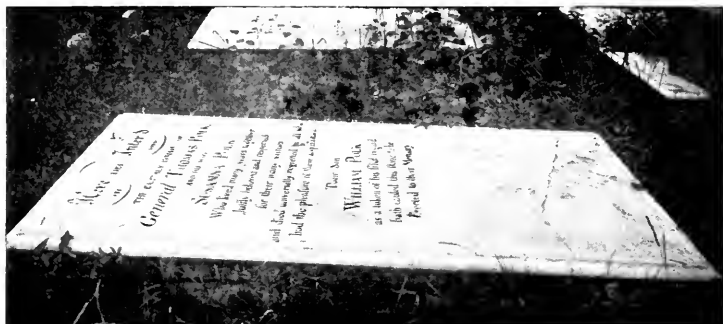 Here lies Inter'd
THE EARTHLY REMAINS OF
General THOMAS POLK
AND HIS WIFE
SUSANNA POLK
Who lived many years together
Justly beloved and respected
for their many virtues
and died universally regretted by all who
had the pleasure of their acquaintance
Their Son
WILLIAM POLK
as a token of his filial regard
hath caused this stone to be
Erected to their Memory